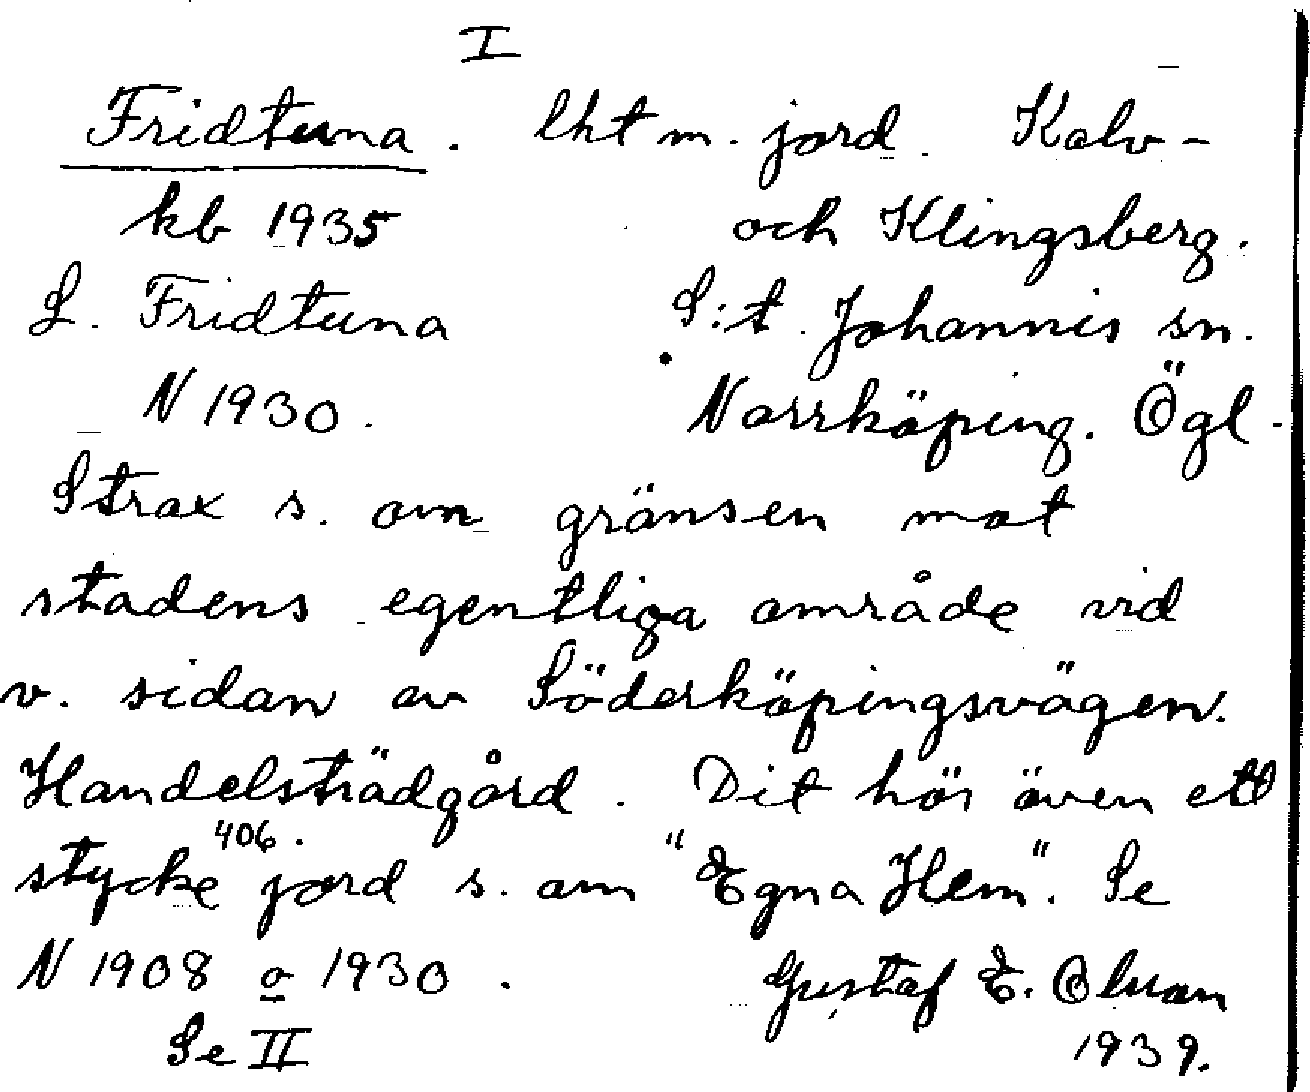 I
Fridtuna. lht m. jord. Kalv-
kb 1935 och Klingsberg.
L. Fridtuna S:t. Johannis sn.
N 1930. Norrköping. Ögl.
Strax s. om gränsen mot
stadens egentliga område vid
v. sidan av Söderköpingsvägen.
Handelsträdgård. Dit hör även ett
406.
stycke jord s. om "Egna Hem". Se
N 1908 o 1930. Gustaf E. Olsson
Se II 1939.